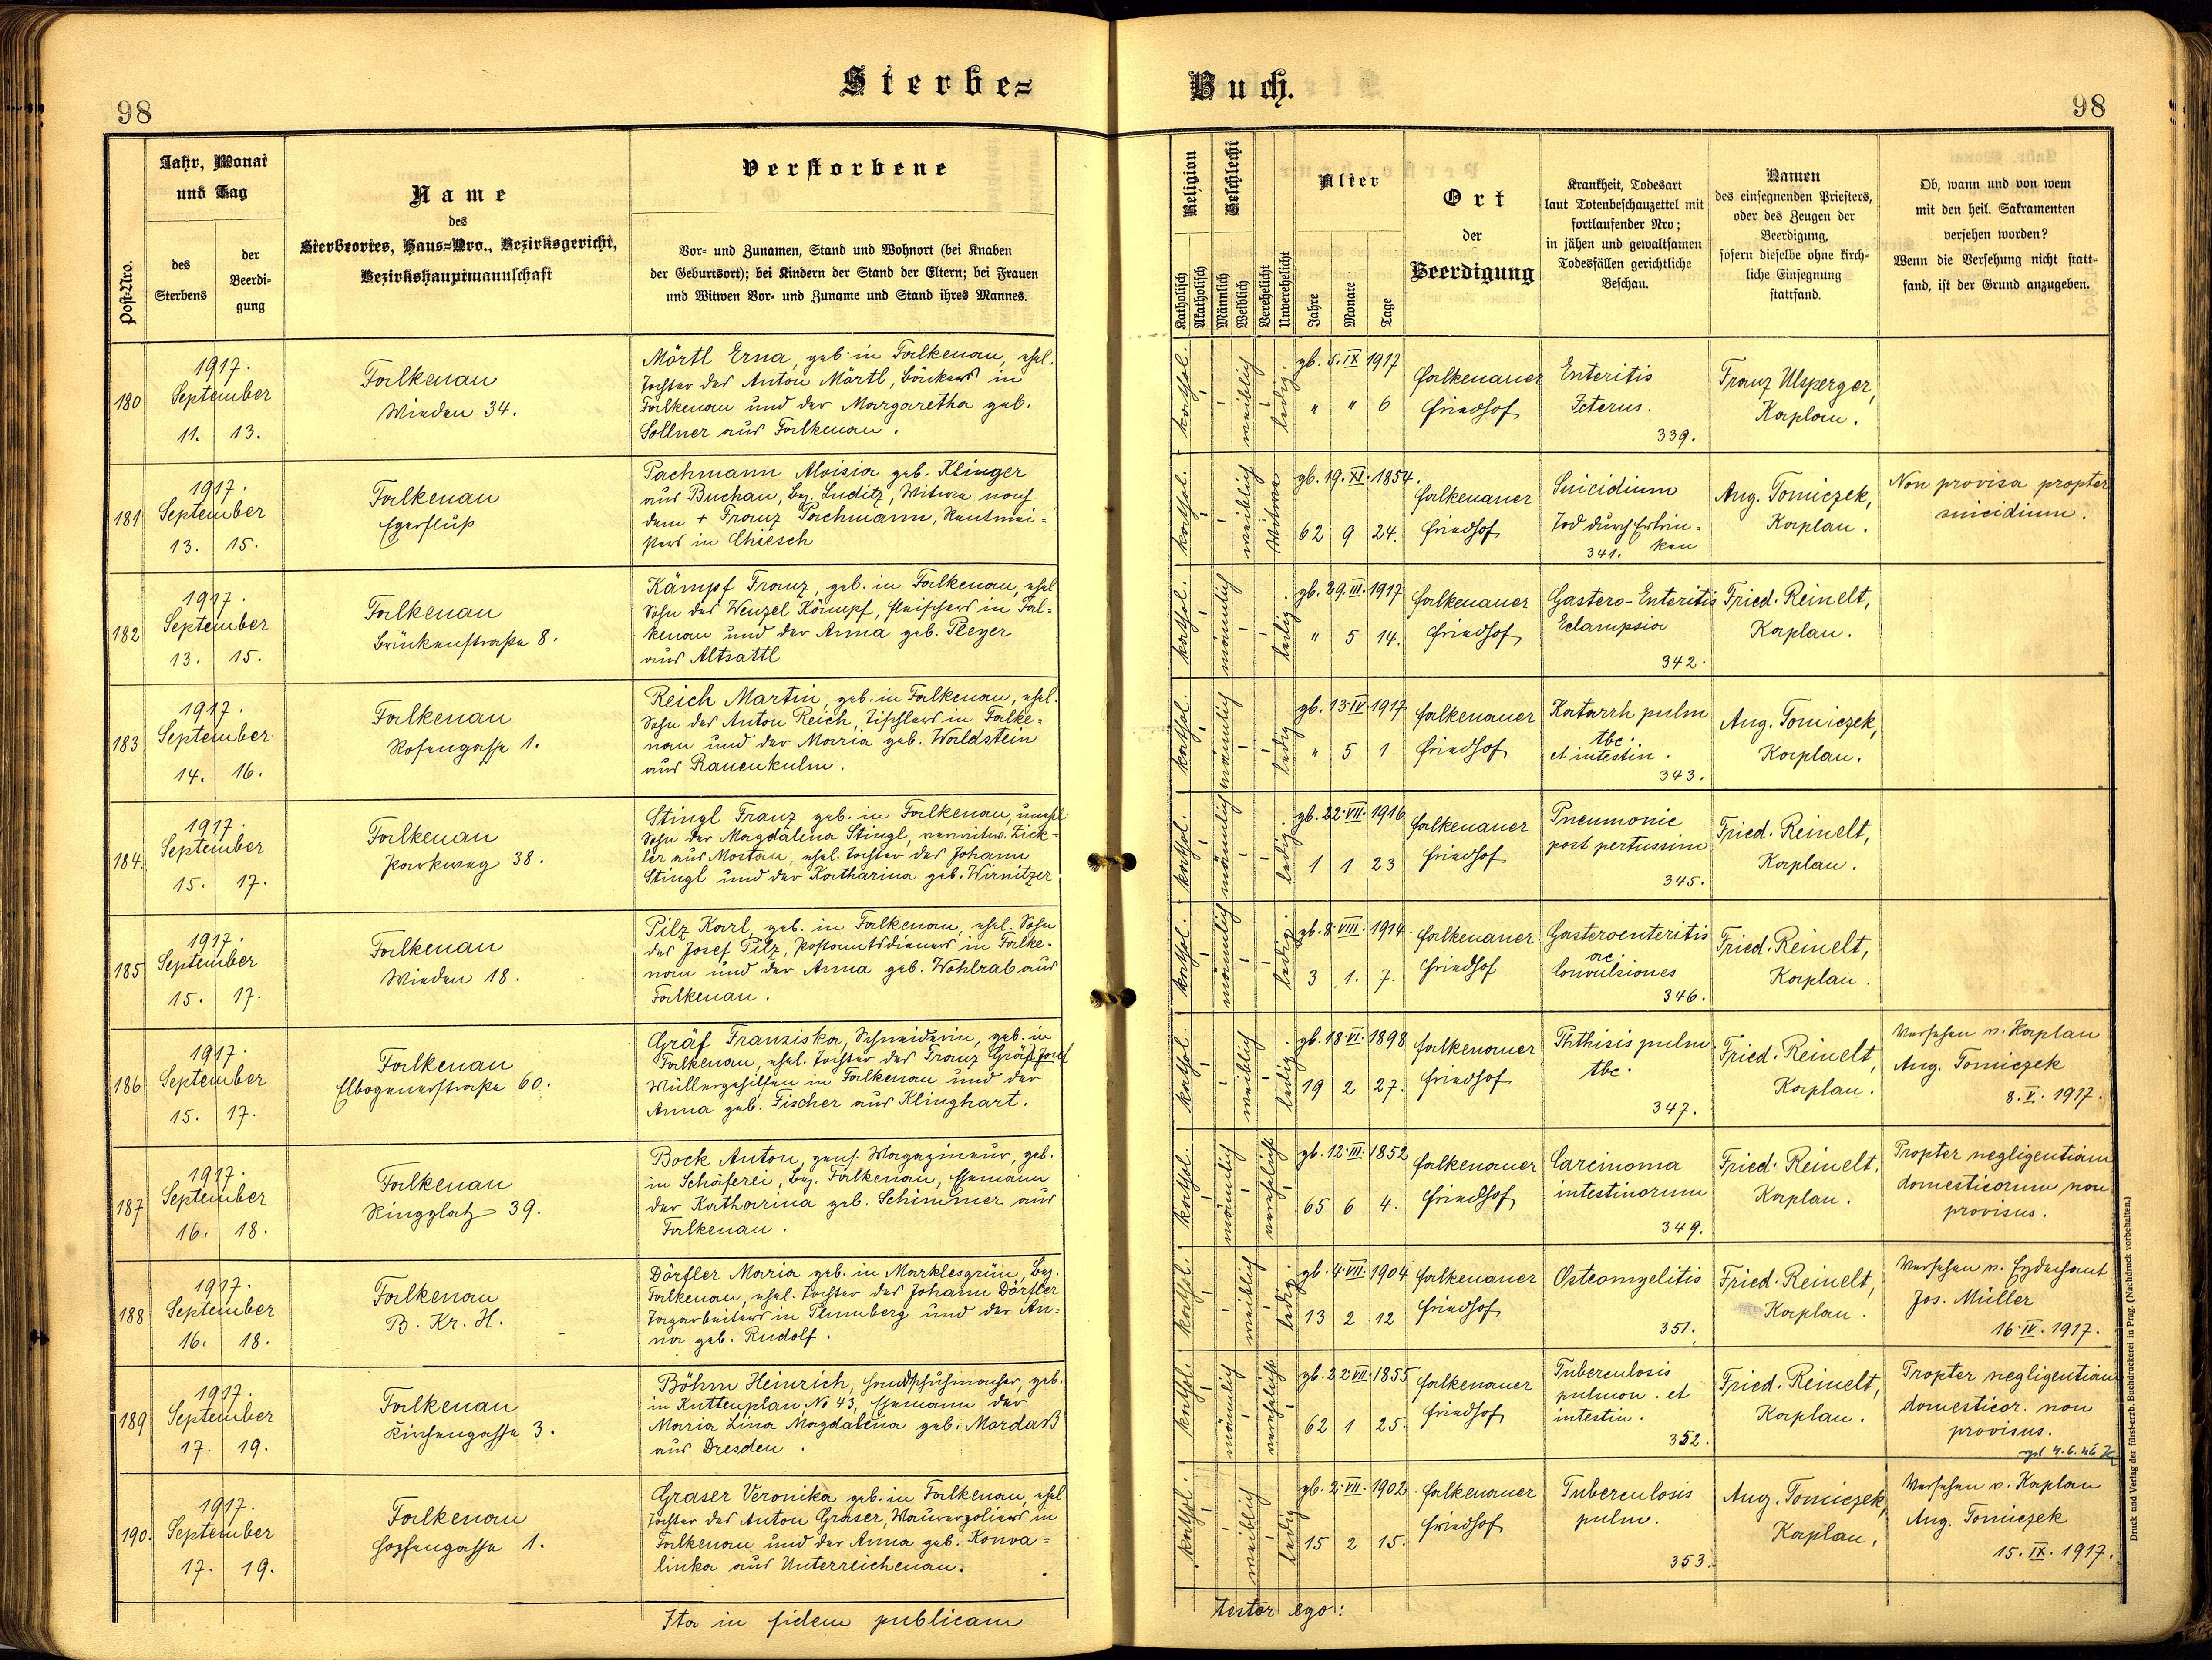 Sterbe=
Buch.
98
98
Post-Nro.
Jahr, Monat
und Tag
des
Sterbens
der
Beerdi-
gung
Name
des
Sterbeortes, Haus-Nro., Bezirksgericht,
Bezirkshauptmannschaft
Verstorbene
Vor- und Zunamen, Stand und Wohnort (bei Knaben
der Geburtsort); bei Kindern der Stand der Eltern; bei Frauen
und Witwen Vor- und Zuname und Stand ihres Mannes.
Religion
Katholisch
Akatholisch
Geschlecht
Männlich
Weiblich
Verehelicht
Unverehelicht
Alter
Jahre
Monate
Tage
Ort
der
Beerdigung
Krankheit, Todesart
laut Totenbeschauzettel mit
fortlaufender Nro;
in jähen und gewaltsamen
Todesfällen gerichtliche
Beschau.
Namen
des einsegnenden Priesters,
oder des Zeugen der
Beerdigung,
sofern dieselbe ohne kirch-
liche Einsegnung
stattfand.
Ob, wann und von wem
mit den heil. Sakramenten
versehen worden?
Wenn die Versehung nicht statt-
fand, ist der Grund anzugeben.
180
1917.
September
11. 13.
Falkenau
Wieden 34.
Mörtl Erna, geb. in Falkenau, ehel.
Tochter des Anton Mörtl, Bäckers in
Falkenau und der Margaretha geb.
Sollner aus Falkenau.
kathol. weiblich ledig.
gb. 5. IX 1917
" " 6
Falkenauer
Friedhof
Enteritis
Icterus.
339.
Franz Ulsperger,
Kaplan.
181
1917.
September
13. 15.
Falkenau
Egerfluß
Pachmann Aloisia geb. Klinger
aus Buchau, Bez. Luditz, Witwe nach
dem + Franz Pachmann, Rentmei-
sters in Chiesch
kathol. weiblich Witwe
gb. 19. XI. 1854.
62 9 24.
Falkenauer
Friedhof
Suicidium
Tod durch Ertrin-
ken
341.
Aug. Tomiczek,
Kaplan.
Non provisa propter
suicidium.
182
1917.
September
13. 15.
Falkenau
Brückenstraße 8.
Kämpf Franz, geb. in Falkenau, ehel
Sohn des Wenzel Kämpf, Fleischers in Fal-
kenau und der Anna geb. Pleyer
aus Altsattl
kathol. männlich ledig.
gb. 29. III. 1917
" 5 14.
Falkenauer
Friedhof
Gastero-Enteritis
Eclampsia
342.
Fried. Reinelt,
Kaplan.
183
1917.
September
14. 16.
Falkenau
Rosengasse 1.
Reich Martin, geb. in Falkenau, ehel.
Sohn des Anton Reich, Tischlers in Falke-
nau und der Maria geb. Waldstein
aus Rauenkulm.
kathol. männlich ledig
gb. 13. IV. 1917
" 5 1
Falkenauer
Friedhof
Katarrh pulm
tbc.
et intestin.
343.
Aug. Tomiczek,
Kaplan.
184.
1917.
September
15. 17.
Falkenau
Parkweg 38.
Stingl Franz geb. in Falkenau, unehl
Sohn der Magdalena Stingl, verwitw. Zick-
ler aus Mostau, ehel. Tochter des Johann
Stingl und der Katharina geb. Wirnitzer
kathol. männlich ledig.
gb. 22. VII. 1916
1 1 23
Falkenauer
Friedhof
Pneumonie
post pertussim
345.
Fried. Reinelt,
Kaplan.
185
1917.
September
15. 17.
Falkenau
Wieden 18.
Pilz Karl, geb. in Falkenau, ehel. Sohn
des Josef Pilz, Postamtsdieners in Falke-
nau und der Anna geb. Wohlrab aus
Falkenau.
kathol. männlich ledig.
gb. 8. VIII. 1914.
3 1. 7.
Falkenauer
Friedhof
Gasteroenteritis
ac
Convulsiones
346.
Fried. Reinelt,
Kaplan.
186
1917.
September
15. 17.
Falkenau
Elbogenerstraße 60.
Gräf Franziska, Schneiderin, geb. in
Falkenau, ehel. Tochter des Franz Gräf Josef
Müllergehilfen in Falkenau und der
Anna geb. Fischer aus Klinghart.
kathol. weiblich ledig.
gb. 18. VI. 1898
19 2 27.
Falkenauer
Friedhof
Phthisis pulm
tbc.
347.
Fried. Reinelt,
Kaplan.
Versehen v. Kaplan
Aug. Tomiczek
8. V. 1917.
187
1917.
September
16. 18.
Falkenau
Ringplatz 39.
Bock Anton, pens. Magazineur, geb.
in Schäferei, Bez. Falkenau, Ehemann
der Katharina geb. Schimmer aus
Falkenau.
kathol. männlich verehelicht
gb. 12. III. 1852
65 6 4.
Falkenauer
Friedhof
Carcinoma
intestinorum
349.
Fried. Reinelt,
Kaplan.
Propter negligentiam
domesticorum non
provisus.
188
1917.
September
16. 18.
Falkenau
B. Kr. H.
Dörfler Maria geb. in Marklesgrün, Bez.
Falkenau, ehel. Tochter des Johann Dörfler
Tagarbeiters in Plumberg und der An-
na geb. Rudolf.
kathol. weiblich ledig.
gb. 4. VII. 1904
13 2 12
Falkenauer
Friedhof
Osteomyelitis
351.
Fried. Reinelt,
Kaplan.
Versehen v. Erzdechant
Jos. Müller
16. IV. 1917.
189
1917.
September
17. 19.
Falkenau
Kirchengasse 3.
Böhm Heinrich, Handschuhmacher, geb.
in Kuttenplan, No 43, Ehemann der
Maria Lina Magdalena geb. Mordaß
aus Dresden.
kathol. männlich verehelicht
gb. 22. VII. 1855
62 1 25.
Falkenauer
Friedhof
Tuberculosis
pulmon. et
intestin.
352.
Fried. Reinelt,
Kaplan.
Propter negligentiam
domesticor. non
provisus.
190.
1917.
September
17. 19.
Falkenau
Hopfengasse 1.
Graser Veronika geb. in Falkenau, ehel
Tochter des Anton Graser, Maurerpoliers in
Falkenau und der Anna geb. Konva-
linka aus Unterreichenau.
kathol. weiblich ledig
gb. 2. VII. 1902.
15 2 15.
Falkenauer
Friedhof
Tuberculosis
pulm.
353.
Aug. Tomiczek,
Kaplan,
Versehen v. Kaplan
Aug. Tomiczek
15. IX. 1917.
Ita in fidem publicam
testor ego:
Druck und Verlag der fürst-erzb. Buchdruckerei in Prag. (Nachdruck vorbehalten.)